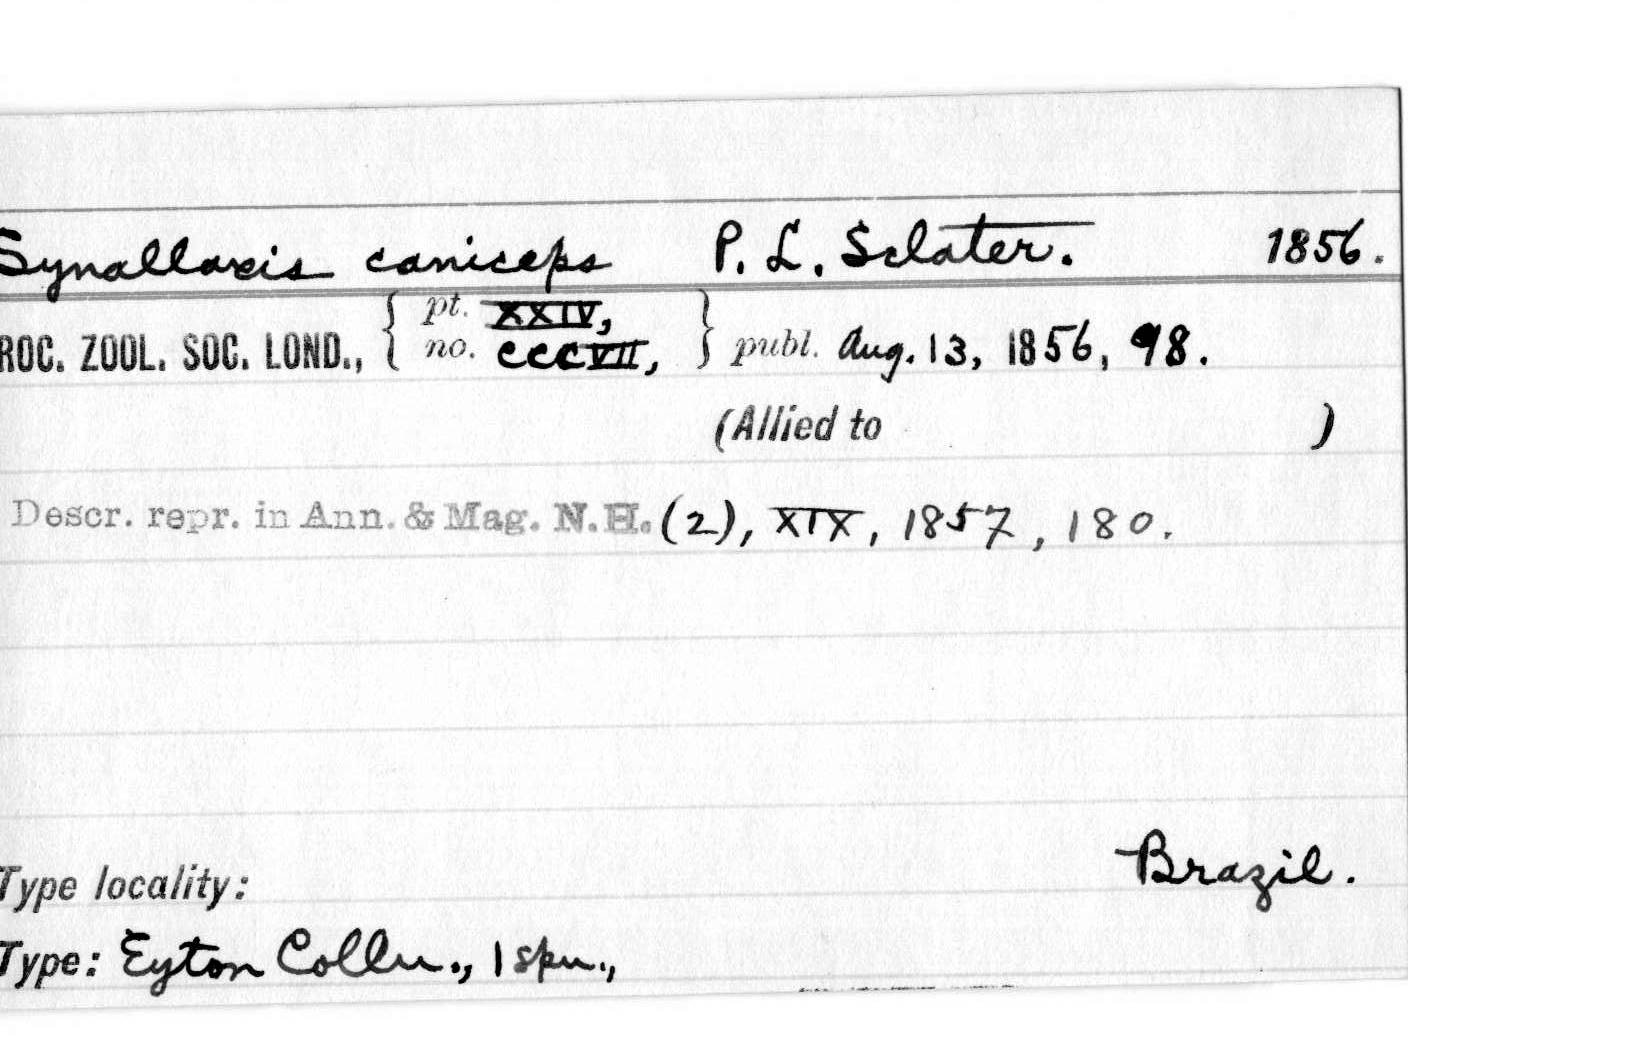 Synallaxis caniceps P. L. Sclater. 1856.
ROC. ZOOL. SOC. LOND., { pt. XXIV, no. CCCVII, } publ. Aug. 13, 1856, 98.
(Allied to )
Descr. repr. in Ann. & Mag. N.H. (2), XIX, 1857, 180.
Brazil.
Type locality:
Type: Eyton Colln., 1 spn.,